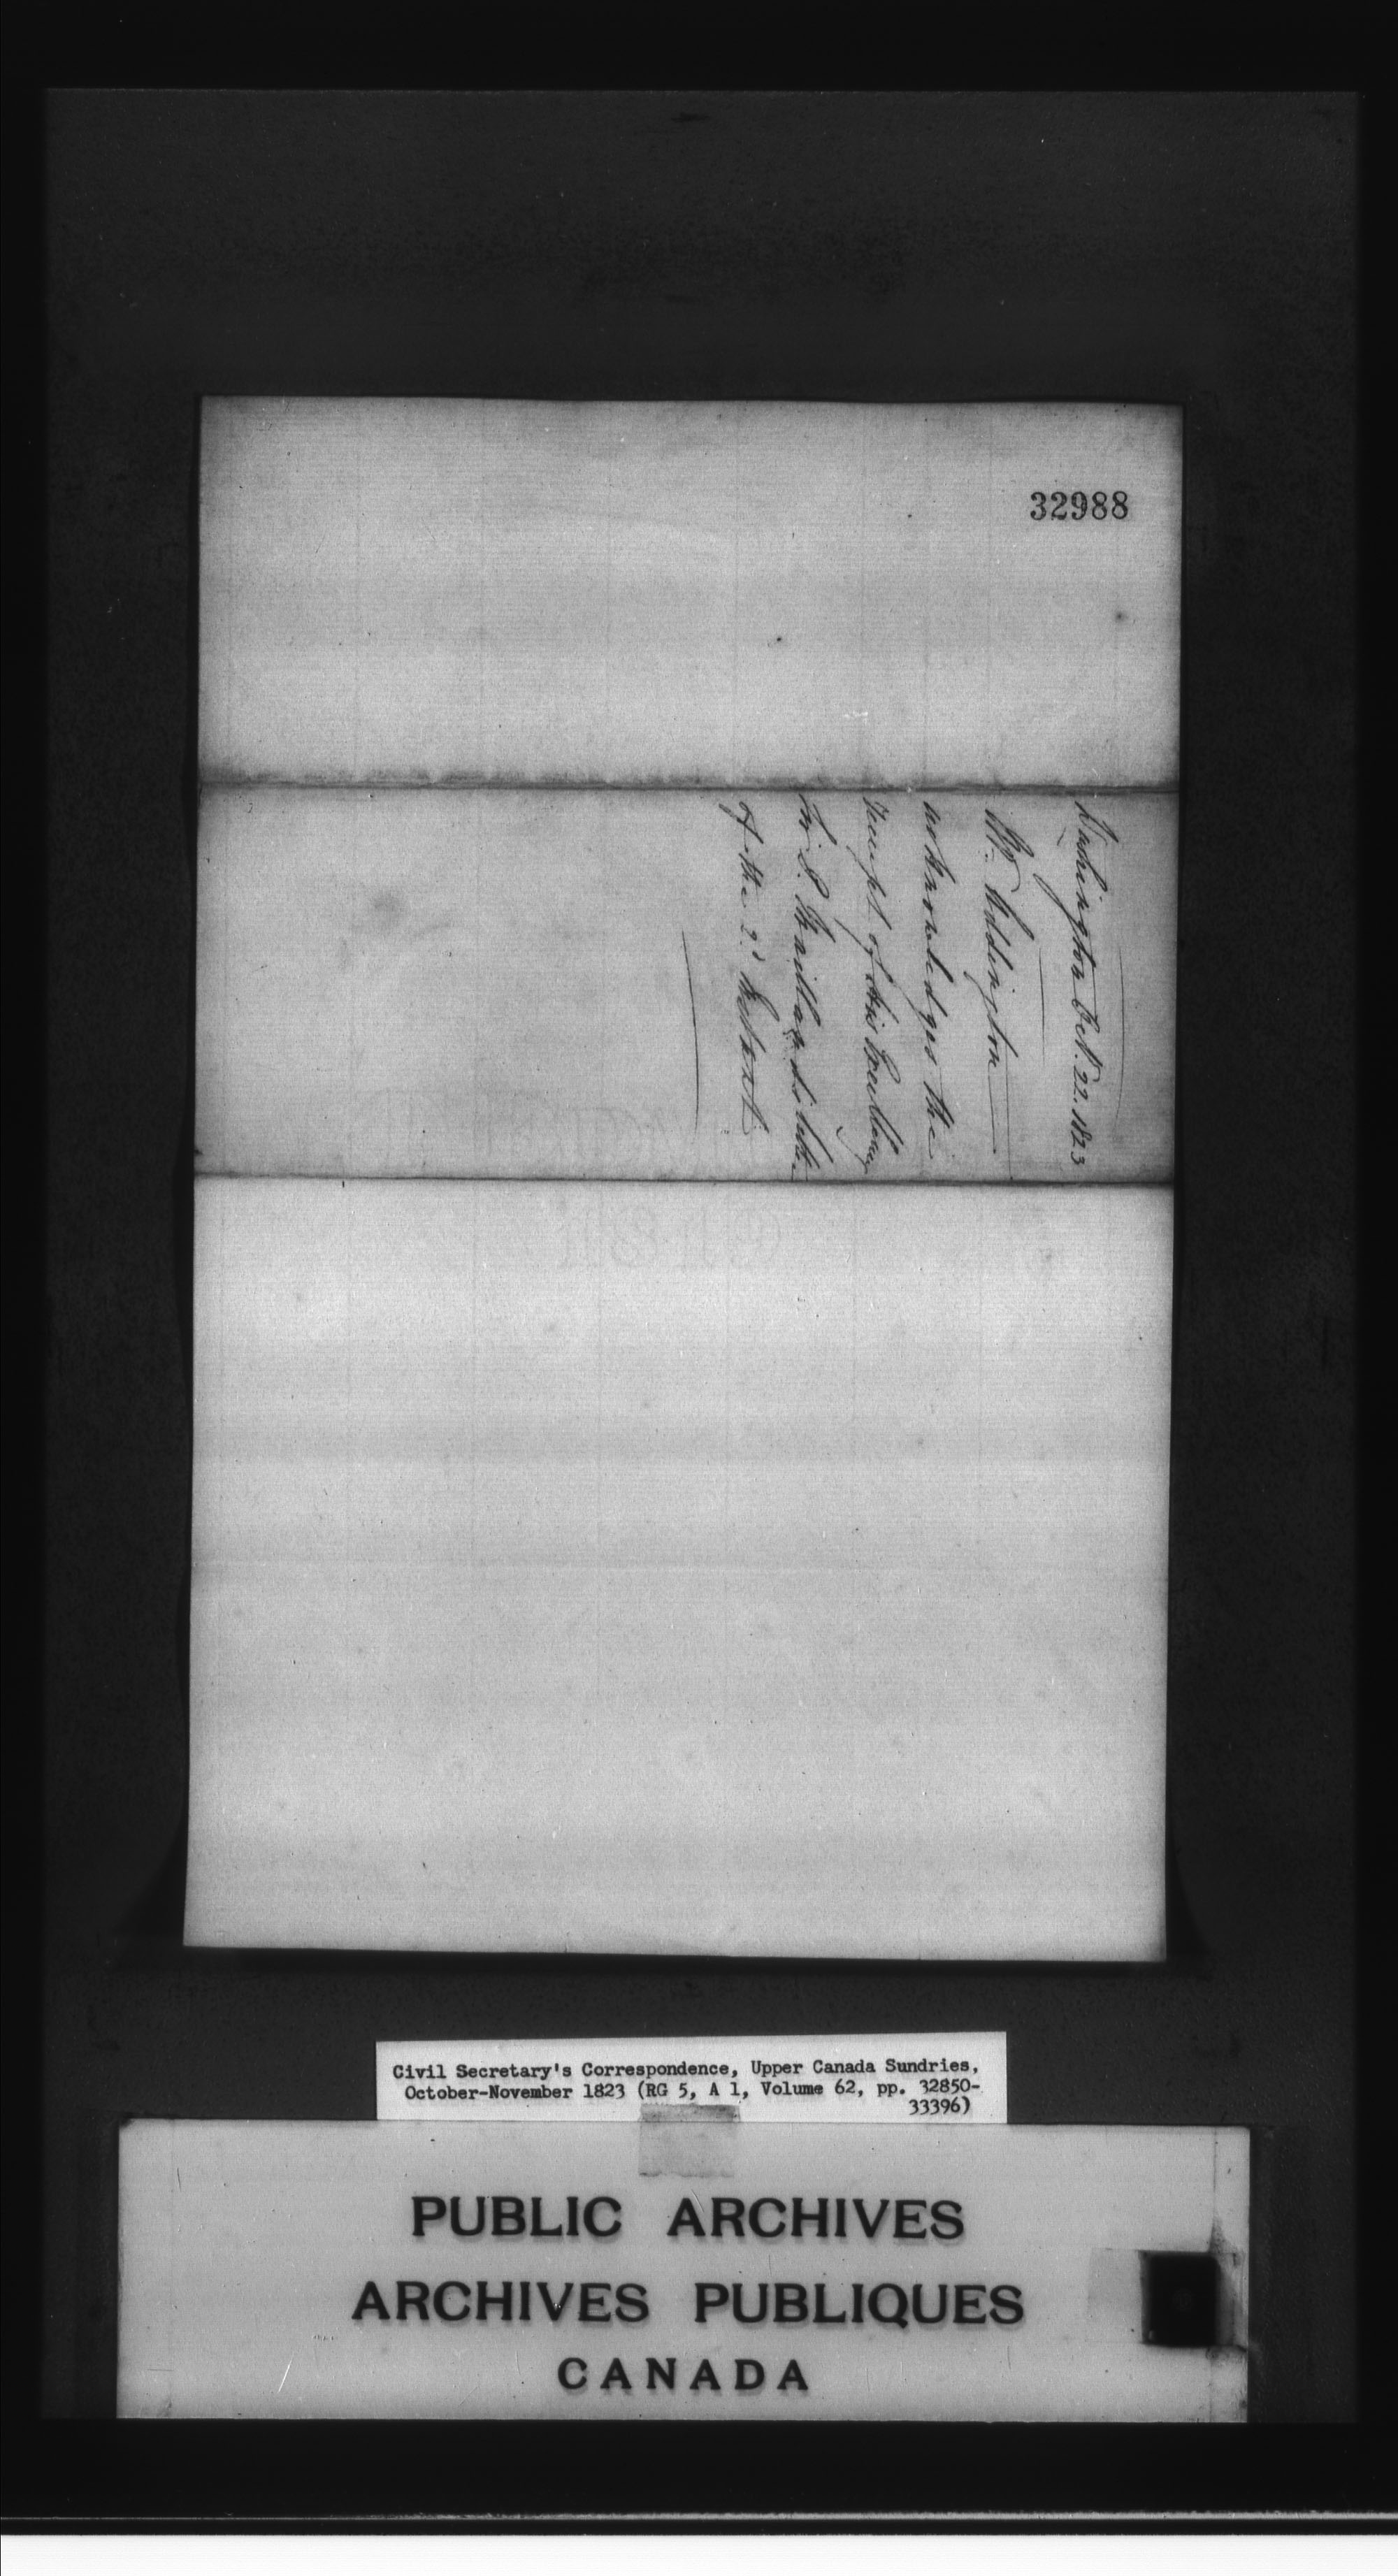 32988
Washington Oct. 22. 1823
Mr. Addington
acknowledges the
receipt of His Excellency
Sir P. Maitland's letter
of the 2d Instant
Civil Secretary's Correspondence, Upper Canada Sundries,
October-November 1823 (RG 5, A 1, Volume 62, pp. 32850-
33396)
PUBLIC ARCHIVES
ARCHIVES PUBLIQUES
CANADA